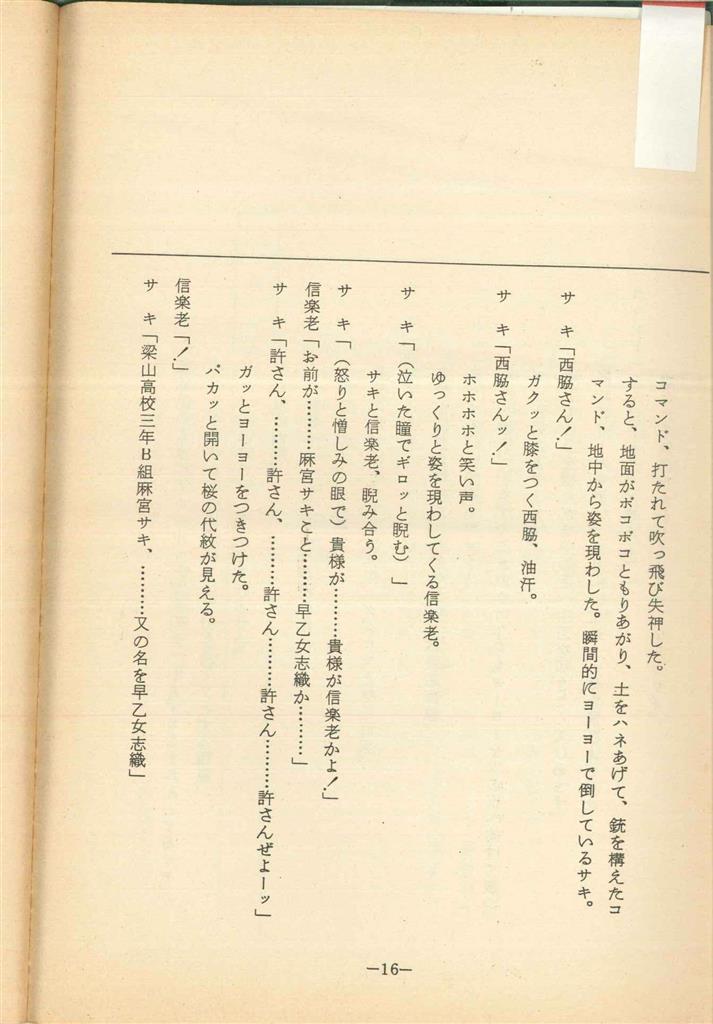 コマンド、打たれて吹っ飛び失神した。
すると、地面がボコボコともりあがり、土をハネあげて、銃を構えたコ
マンド、地中から姿を現わした。瞬間的にヨーヨーで倒しているサキ。
サ　キ「西脇さん！」
ガクッと膝をつく西脇、油汗。
サ　キ「西脇さんッ！」
ホホホホと笑い声。
ゆっくりと姿を現わしてくる信楽老。
サ　キ「（泣いた瞳でギロッと睨む）」
サキと信楽老、睨み合う。
サ　キ「（怒りと憎しみの眼で）貴様が…………貴様が信楽老かよ！」
信楽老「お前が…………麻宮サキこと…………早乙女志織か…………」
サ　キ「許さん、…………許さん、…………許さん…………許さん…………許さんぜよーッ」
ガッとヨーヨーをつきつけた。
パカッと開いて桜の代紋が見える。
信楽老「！」
サ　キ「梁山高校三年B組麻宮サキ、…………又の名を早乙女志織」
—16—